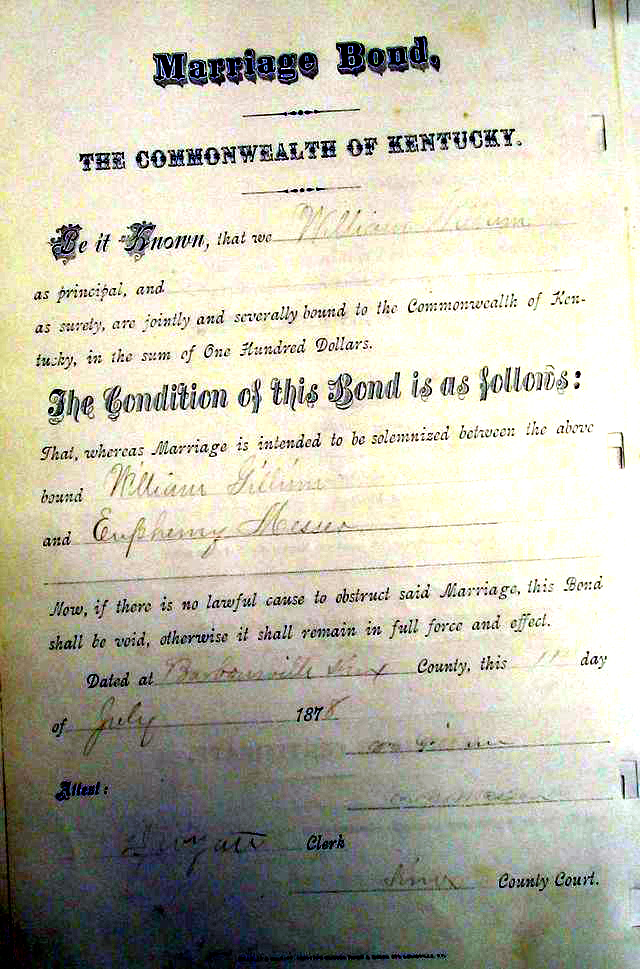 Marriage Bond,
THE COMMONWEALTH OF KENTUCKY.
Be it Known, that we William
as principal, and
as surety, are jointly and severally bound to the Commonwealth of Ken-
tucky, in the sum of One Hundred Dollars.
The Condition of this Bond is as follows:
That, whereas Marriage is intended to be solemnized between the above
bound William Gillum
and Euphemy Messer
Now, if there is no lawful cause to obstruct said Marriage, this Bond
shall be void, otherwise it shall remain in full force and effect.
Dated at Barboursville Knox County, this 11 day
of July 1878
Attest:
Clerk
Knox County Court.